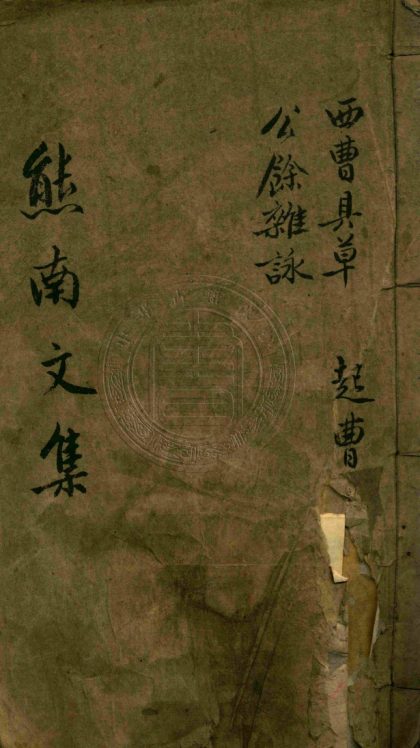 西曹具草 起曹
公餘雜詠
熊南文集